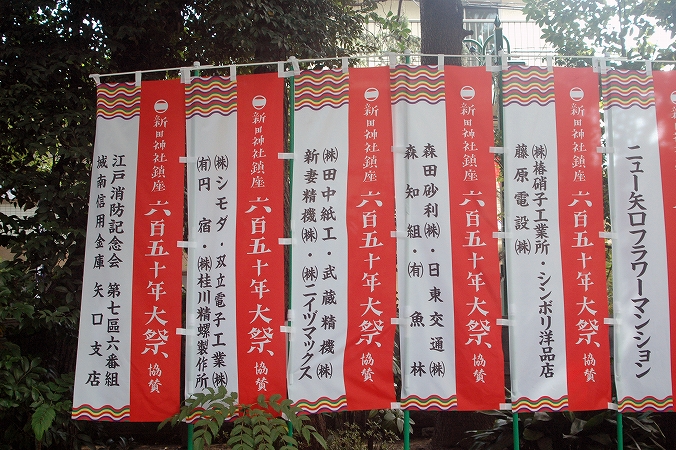 新田神社鎮座 六百五十年大祭 協賛
江戸消防記念会 第七區六番組
城南信用金庫 矢口支店
新田神社鎮座 六百五十年大祭 協賛
㈱シモダ・双立電子工業㈱
㈲円宿・㈱桂川精螺製作所
新田神社鎮座 六百五十年大祭 協賛
㈱田中紙工・武蔵精機㈱
新妻精機㈱・㈱ニイヅマックス
新田神社鎮座 六百五十年大祭 協賛
森田砂利㈱・日東交通㈱
森知組・㈲魚林
新田神社鎮座 六百五十年大祭 協賛
㈱椿硝子工業所・シンボリ洋品店
藤原電設㈱
ニュー矢口フラワーマンション